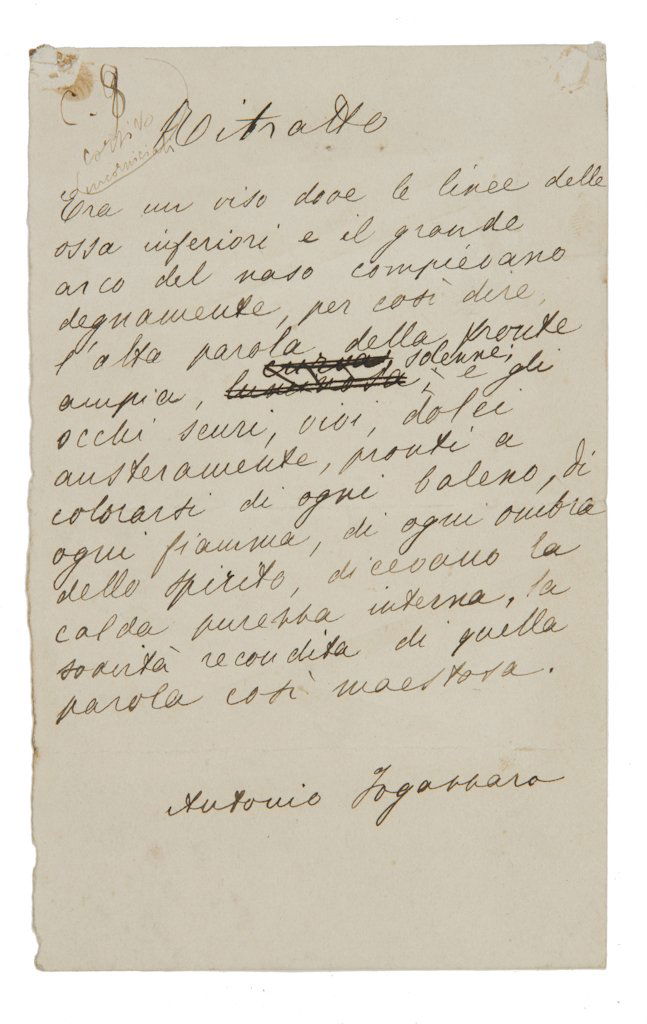 C. 8
corsivo
Ritratto
Era un viso dove le linee delle
ossa inferiori e il grande
arco del naso compiévano
degnamente, per così dire,
l'alta parola della fronte
curva, solenne;
ampia, luminosa; e gli
occhi scuri, vivi, dolci
austeramente, pronti a
colorarsi di ogni baleno, di
ogni fiamma, di ogni ombra
dello spirito, dicevano la
calda purezza interna, la
soavità recondita di quella
parola così maestosa.
Antonio Fogazzaro